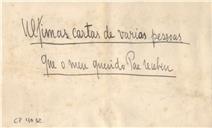 Ultimas cartas de varias pessoas
que o meu querido Pae recebeu